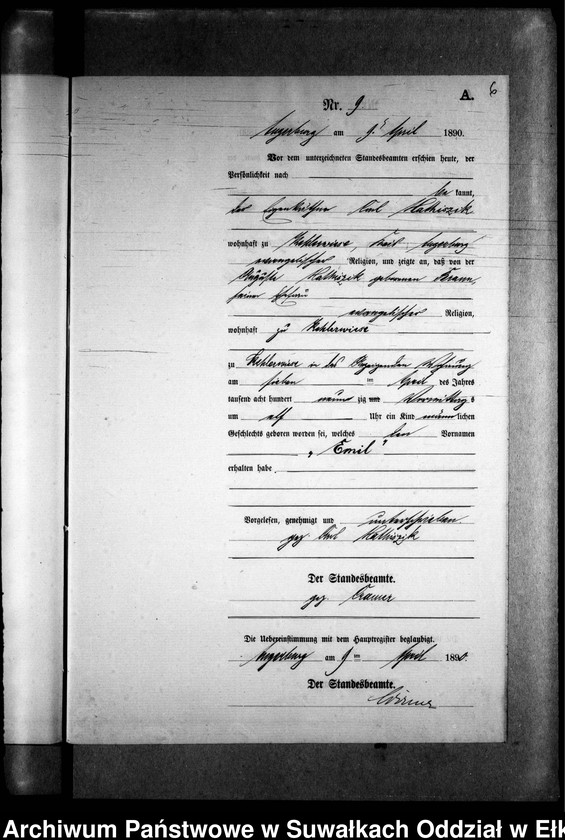 A. 6
Nr. 9
Angerburg am 9. April 1890.
Vor dem unterzeichneten Standesbeamten erschien heute, der
Persönlichkeit nach
be kannt,
der Karl
wohnhaft zu Kehlerwiese, Kreis Angerburg
evangelischer Religion, und zeigte an, daß von der
Auguste geborenen
seiner Ehefrau
evangelischer Religion,
wohnhaft zu Kehlerwiese
zu Kehlerwiese in des Anzeigenden Wohnung
am sieben ten April des Jahres
tausend acht hundert neun zig Vormittag s
um elf Uhr ein Kind männlichen
Geschlechts geboren worden sei, welches den Vornamen
„Emil“
erhalten habe.
Vorgelesen, genehmigt und unterschrieben
gez. Karl
Der Standesbeamte.
gez.
Die Uebereinstimmung mit dem Hauptregister beglaubigt.
Angerburg am 9 ten April 1890.
Der Standesbeamte.
Archiwum Państwowe w Suwałkach Oddział w Ełk